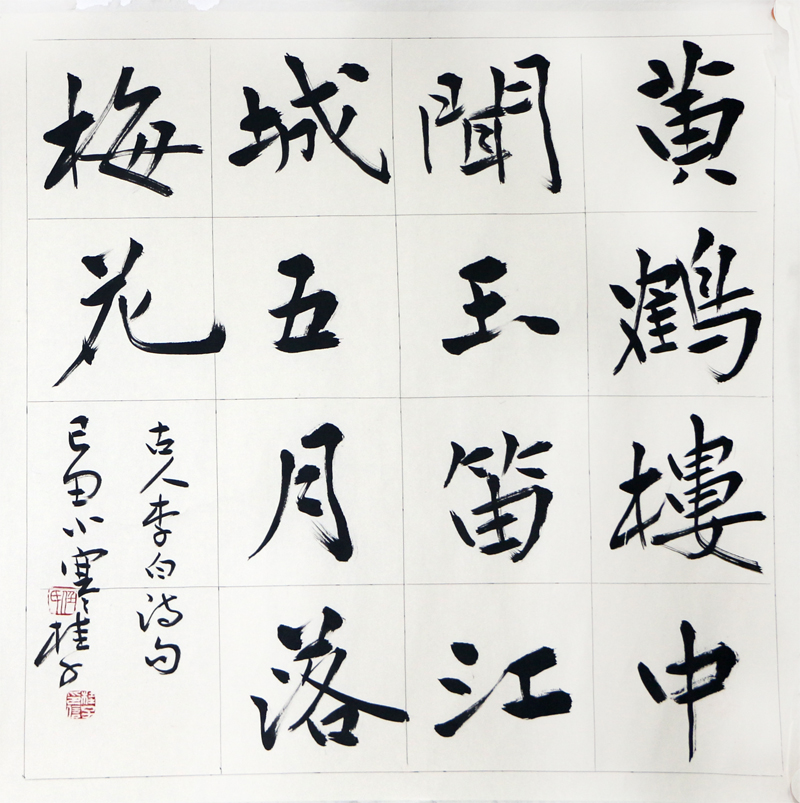 黄鶴樓中
聞玉笛江
城五月落
梅花
古人李白詩句
小寒桂